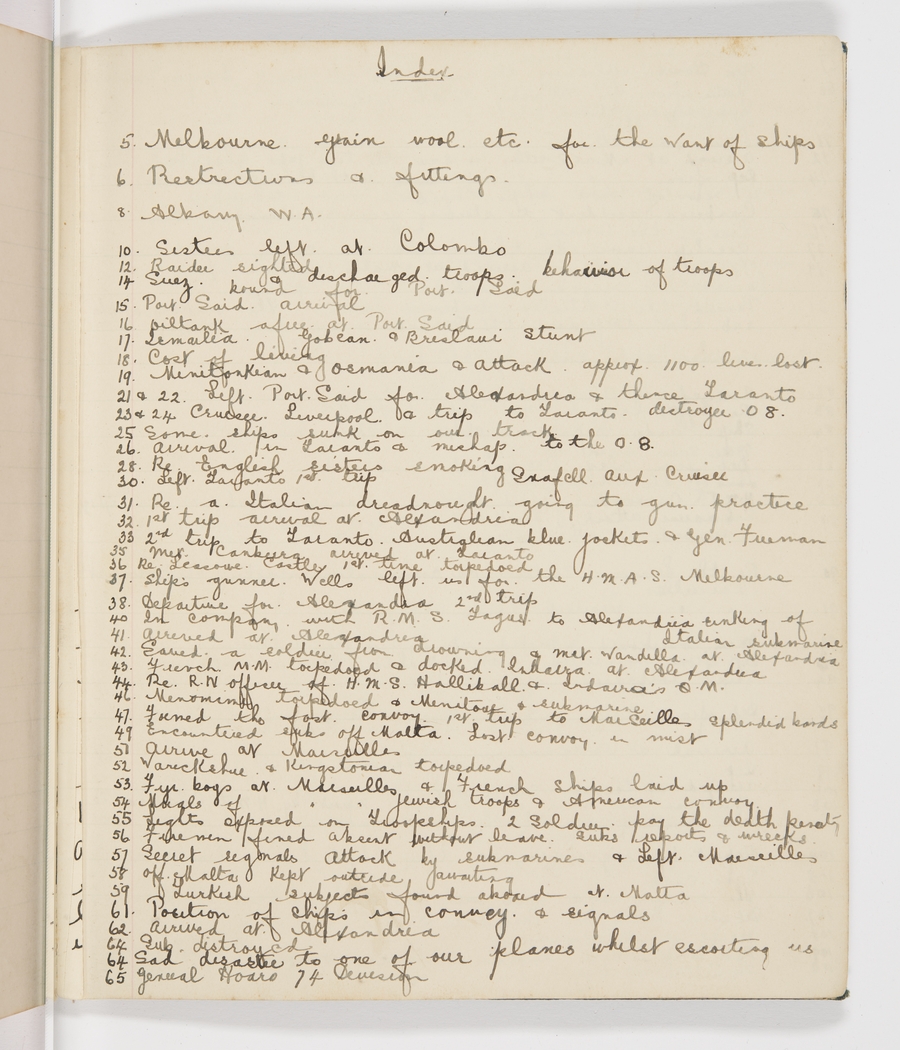 Index
5. Melbourne. grain wool. etc. for the want of ships
6. Restrections & fittings.
8. Albany W.A.
10. Sisters left at Colombo
12. Raider sighted discharged troops. behaviour of troops
14 Suez. & bound for Port Said
15. Port Said. arrival
16 oiltank afire at Port Said
17. Ismailia. Gobean. & Breslaui Stunt
18. Cost of living
19. Minitonkian & Osmania & attack. approx. 1100 lives lost.
21 & 22. Left. Port Said for Alexandria & thence Taranto
23 & 24 Cruiser Liverpool. & trip to Taranto. destroyer 08.
25 Some. ships sunk on our track
26. arrival in Taranto & mishap. to the 0.8.
28. Re English sisters smoking
30. Left. Taranto 1st trip Grafell aux Cruiser
31. Re. a. Italian dreadnought. going to gun practice
32. 1st trip arrival at Alexandria
33 2nd trip to Taranto. Australian blue jackets. & Gen. Freeman
35 Met. Canberra arrived at Taranto
36 Re Lessowe Castle 1st time torpedoed
37. Ship's gunner. Wells left us for the H.M.A.S. Melbourne
38. Departure for Alexandria 2nd trip
40 In company with R.M.S. Tagus to Alexandria sinking of Italian submarine
41. arrived at Alexandria
42. Saved a soldier from drowning & met. Wandilla at Alexandria
43. French M.M. torpedoed & docked. Indarra. at Alexandria
44. Re. R.N officer of H.M.S. Hallikall. & Indarra's Q.M.
46. Menominee torpedoed & Menitou & submarine
47. Juned the fast. convoy 1st trip to Marseilles splendid bands
49 Encountered subs off Malta. Lost convoy in mist
51 arrive at Marseilles
52 Warickshue & Kingstonian torpedoed
53. Fur. bogs at Marseilles & French Ships laid up
54 Meals of " " Jewish troops & American convoy
55 Lights exposed on Troopships. 2 Soldiers pay the death penalty
56 Firemen fined absent without leave. Subs reports & wrecks.
57 Secret signals attack by submarines & Left. Marseilles
58 off. Malta kept outside awaiting
59 Turkish subjects found aboard at Malta
61. Position of ships in convoy. & signals
62. arrived at Alexandria
64 Sub. distroyed
64 Sad disaster to one of our planes whilst escorting us
65 General Hoard 74 Devision